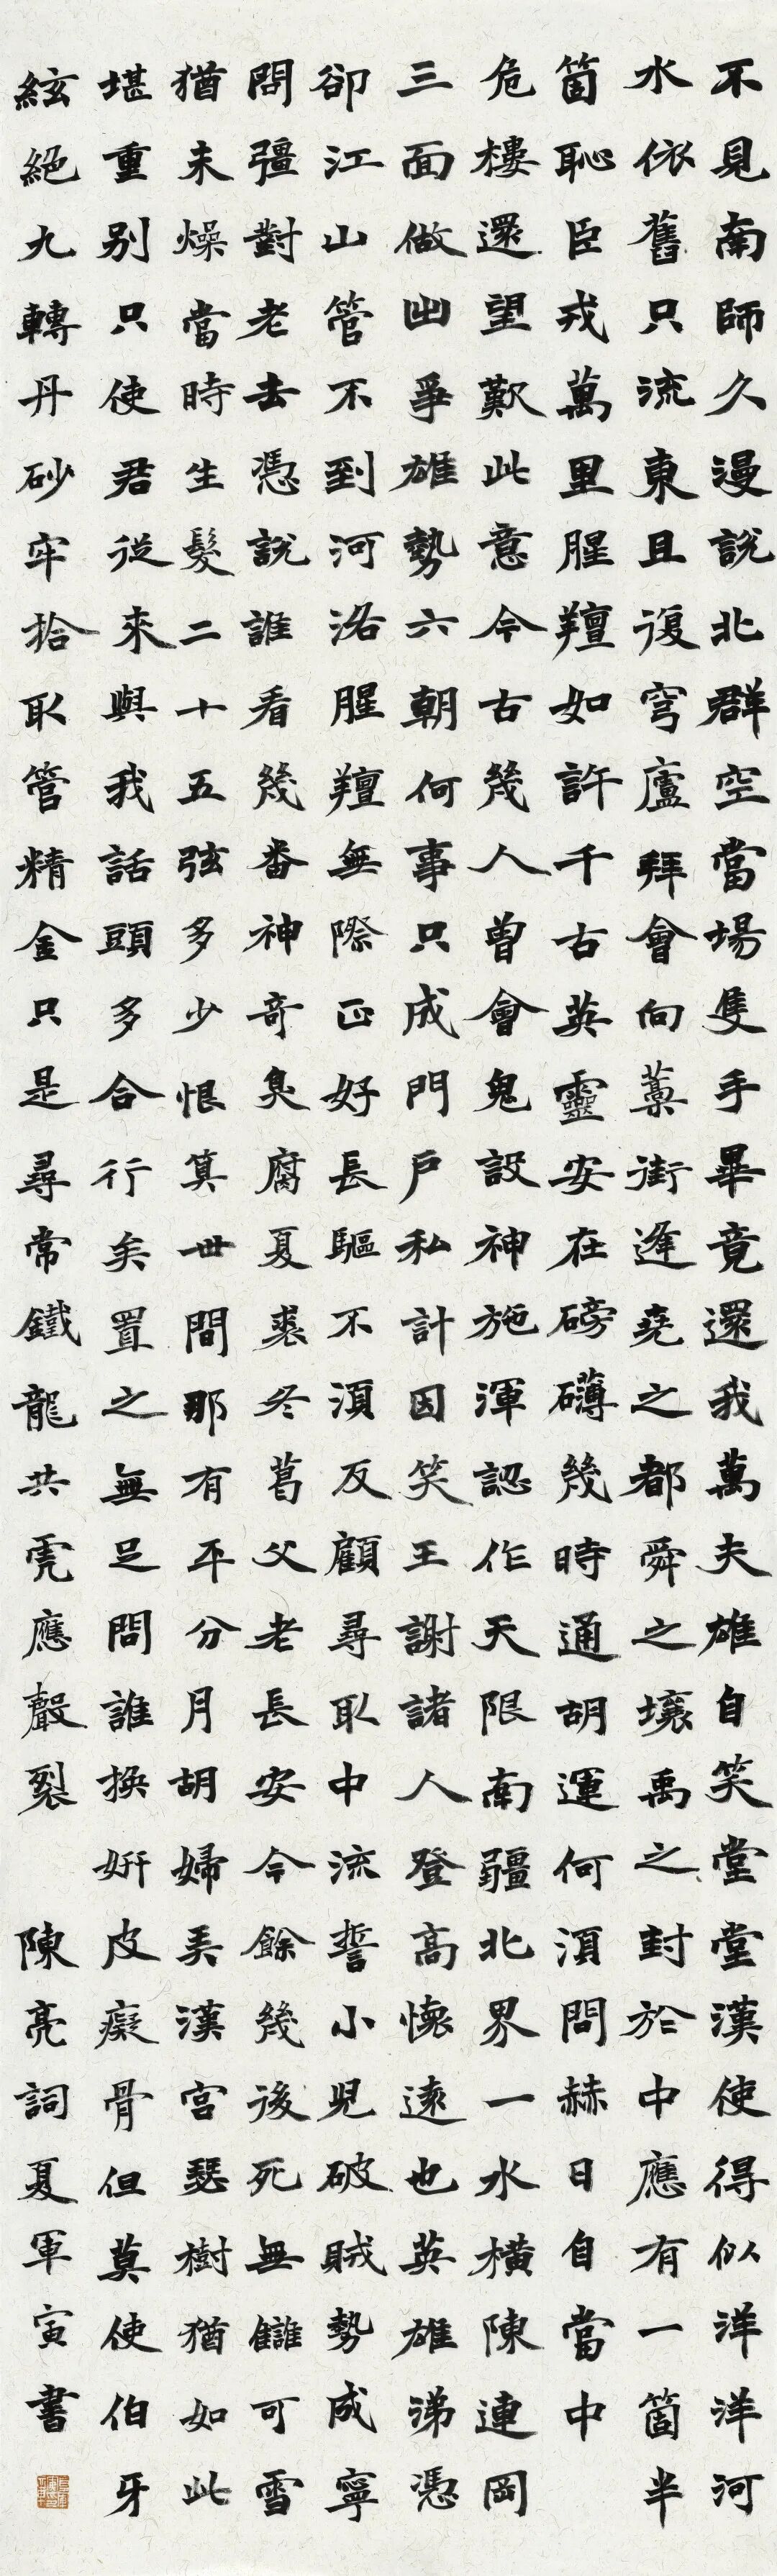 不見南師久漫說北群空當場隻手畢竟還我萬夫雄自笑堂堂漢使得似洋洋河
水依舊只流東且復穹廬拜會向藁街逢堯之都舜之壤禹之封於中應有一箇半
箇恥臣戎萬里腥羶如許千古英靈安在磅礴幾時通胡運何須問赫日自當中
危樓還望歎此意今古幾人曾會鬼設神施渾認作天限南疆北界一水橫陳連岡
三面做出爭雄勢六朝何事只成門戶私計因笑王謝諸人登高懷遠也英雄涕憑
卻江山管不到河洛腥羶無際正好長驅不須反顧尋取中流誓小兒破賊勢成寧
問彊對老去憑說誰看幾番神奇臭腐夏裘冬葛父老長安今餘幾後死無讎可雪
猶未燥當時生髮二十五弦多少恨算世間那有平分月胡婦弄漢宮瑟樹猶如此
堪重別只使君從來與我話頭多合行矣置之無足問誰換妍皮癡骨但莫使伯牙
絃絕九轉丹砂牢拾取管精金只是尋常鐵龍共虎應聲裂
陳亮詞夏軍寅書